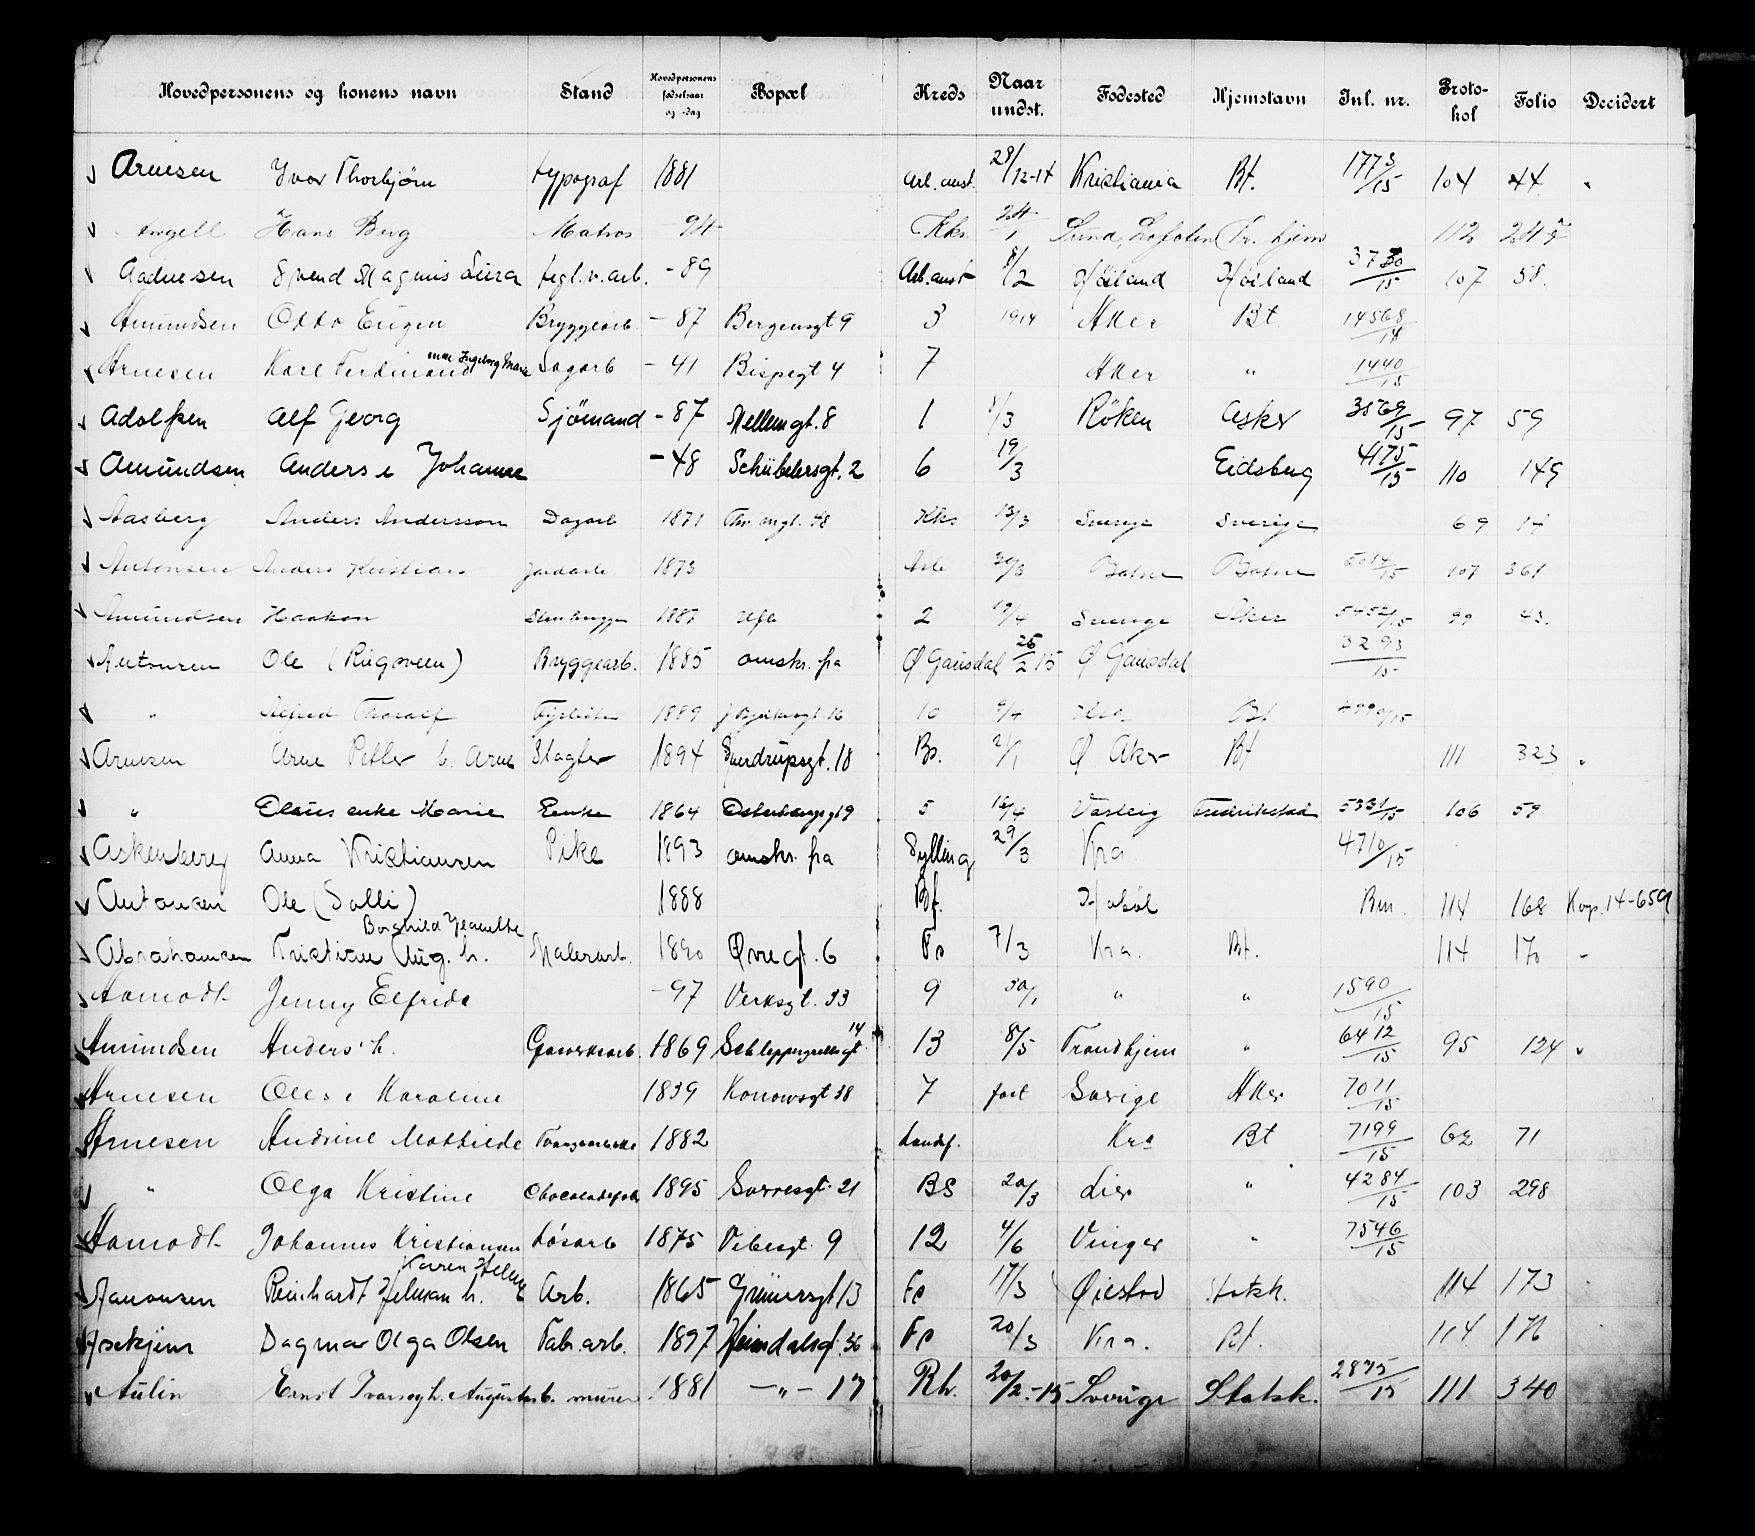 Hovedpersonens og konens navn Stand Hovedpersonens fødselsaar og -dag Bopæl Kreds Naar undst. Fødested Hjemstavn Inl. nr. Protokol Folio Decidert
Arnesen Ivar Thorbjørn typograf 1881 Arb. anst. 28/12-14 Kristiania Bt. 1773/15 104 44
Angell Hans Berg Matros -94 Kks. 24/1 Sund, Lofoten Tr. hjem 112 247
Aadnesen Svend Magnus Lura tegl.v.arb. -89 Arb. anst 8/2 Høiland Høiland 3730/15 107 58.
Amundsen Otto Eugen Bryggearb. -87 Bergensgt 9 3 1914 Aker Bt. 14568/14
Arnesen Karl Ferdinand Ingeborg Marie Sagarb -41 Bispegt 4 7 Aker " 1440/15
Adolfsen Alf Georg Sjömand -87 Mellemgt. 8 1 1/3 Röken Asker 3569/15 97 59
Amundsen Anders e Johanne -48 Schübelersgt. 2 6 19/3 Eidsberg 4175/15 110 149
Aasberg Anders Andersson Dagarb 1871 48 Kks 13/3 Sverige Sverige 69 14
Antonsen Anders Kristian Jordarb 1873 Arb 20/3 107 361
Amundsen Haakon 1887 2 19/4 Sverige Aker 99 43.
Antonsen Ole (Ringsveen) Bryggearb. 1885 omskr. fra Ø Gausdal 26/2 15 Ø Gausdal 3293/15
" Alfred Thoralf 1889 16 10 9/4 Bt
Arnesen Arne Petter h. Arne Slagter 1894 Sundrupsgt. 18 Bs. 2/1 Ø Aker Bt 111 323
" Claus enke Marie Enke 1864 5 16/4 Fredrikstad 5331/15 106 59
Askenberg Anna Kristiansen Pike 1893 omskr. fra Sylling 29/3 Kra. 4710/15
Antonsen Ole (Solli) 1888 Bf. Hobøl Bm. 114 168 Kop. 14-659
Borghild Jeanette
Abrahamsen Kristian Aug. h. Malerarb. 1890 Øvregt. 6 Fs 7/3 Kra. Bt. 114 170
Aamodt Jenny Elfrida -97 Verksgt. 33 9 30/1 " " 1590/15
Amundsen Anders h. Gasverksarb. 1869 Schleppegrellsgt 14 13 8/5 Trondhjem " 6412/15 95 124
Arnesen Oles e Karoline 1839 Konowsgt 38 7 fort Sverige Aker 7071/15
Arnesen Andrine Mathilde Tvangsarbeide 1882 Landf. Kra Bt 7199/15 62 71
" Olga Kristine Chocoladefabr 1895 Sorresgt. 21 BS 20/3 Lier " 4284/15 103 298
Aamodt Johannes Kristiansen Løsarb 1875 Vibesgt. 9 12 4/6 Vinger " 7546/15
Karen Helene
Aanonsen Reinhardt Helman h. Arb. 1865 Grünersgt 13 Fs 17/3 Øiestad Statsk. 114 173
Dagmar Olga Olsen Fabr. arb. 1897 Heimdalsgt. 36 Fs 20/3 Kra. Bt. 114 176
Aulin Ernst Ivarsøgh. Augusta b. murer 1881 -"- 17 Rh. 20/2-15 Sverige Statsk. 2875/15 111 340